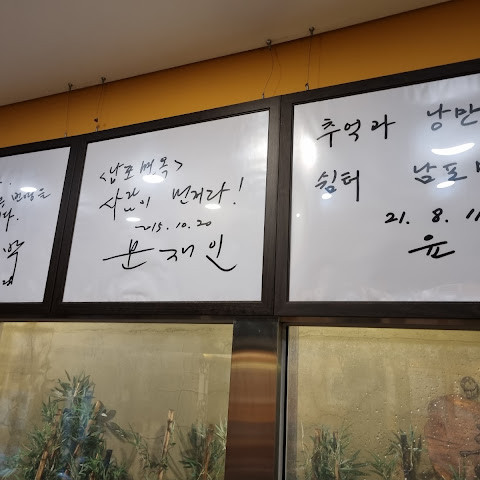 <남포면옥>
사람이 먼저다!
2015. 10. 20
문재인
추억과 낭만
쉼터 남포
21. 8. 11
윤